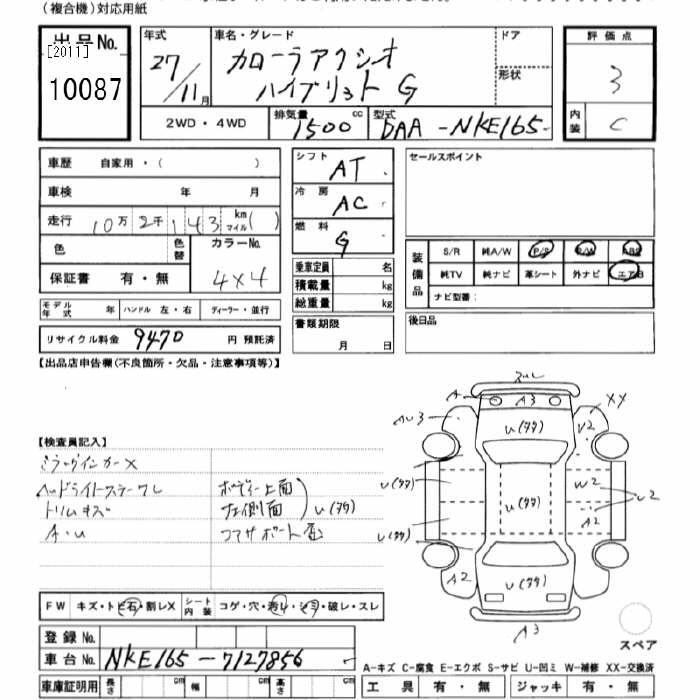 (複合機)対応用紙
出品No. [2011] 10087
年式 27/11月
車名・グレード カローラアクシオ ハイブリット G
ドア
形状
評価点 3
内装 C
2WD・4WD
排気量 1500 cc
型式 DAA-NKE165-
車歴 自家用・( )
車検 年 月
走行 10万2千143 km マイル( )
色 色替 カラーNo. 4×4
保証書 有・無
モデル年式 年 ハンドル 左・右 ディーラー・並行
リサイクル料金 9470 円 預託済
シフト AT
冷房 AC
燃料 G
乗車定員 名
積載量 kg
総重量 kg
書類期限
月 日
セールスポイント
装備品
S/R 純A/W P/S P/W ABS
純TV 純ナビ 革シート 外ナビ エアB
ナビ型番:
後日品
【出品店申告欄(不良箇所・欠品・注意事項等)】
【検査員記入】
ミラーウインカーX
ヘッドライトステーワレ ボディー上面
トリムキズ 左側面 U(タタ)
A・U コアサポート歪
スレ
A A3
AU3
XX
U(タタ) U2
U(タタ) U(タタ) W2
U2
U(タタ) A2
A2 U(タタ)
A3
スペア
FW キズ・トビ石・割レX シート内装 コゲ・穴・汚レ・シミ・破レ・スレ
登録No.
車台No. NKE165-7127856
車庫証明用 長さ cm 幅 cm 高さ cm
A-キズ C-腐食 E-エクボ S-サビ U-凹ミ W-補修 XX-交換済
工具 有・無 ジャッキ 有・無